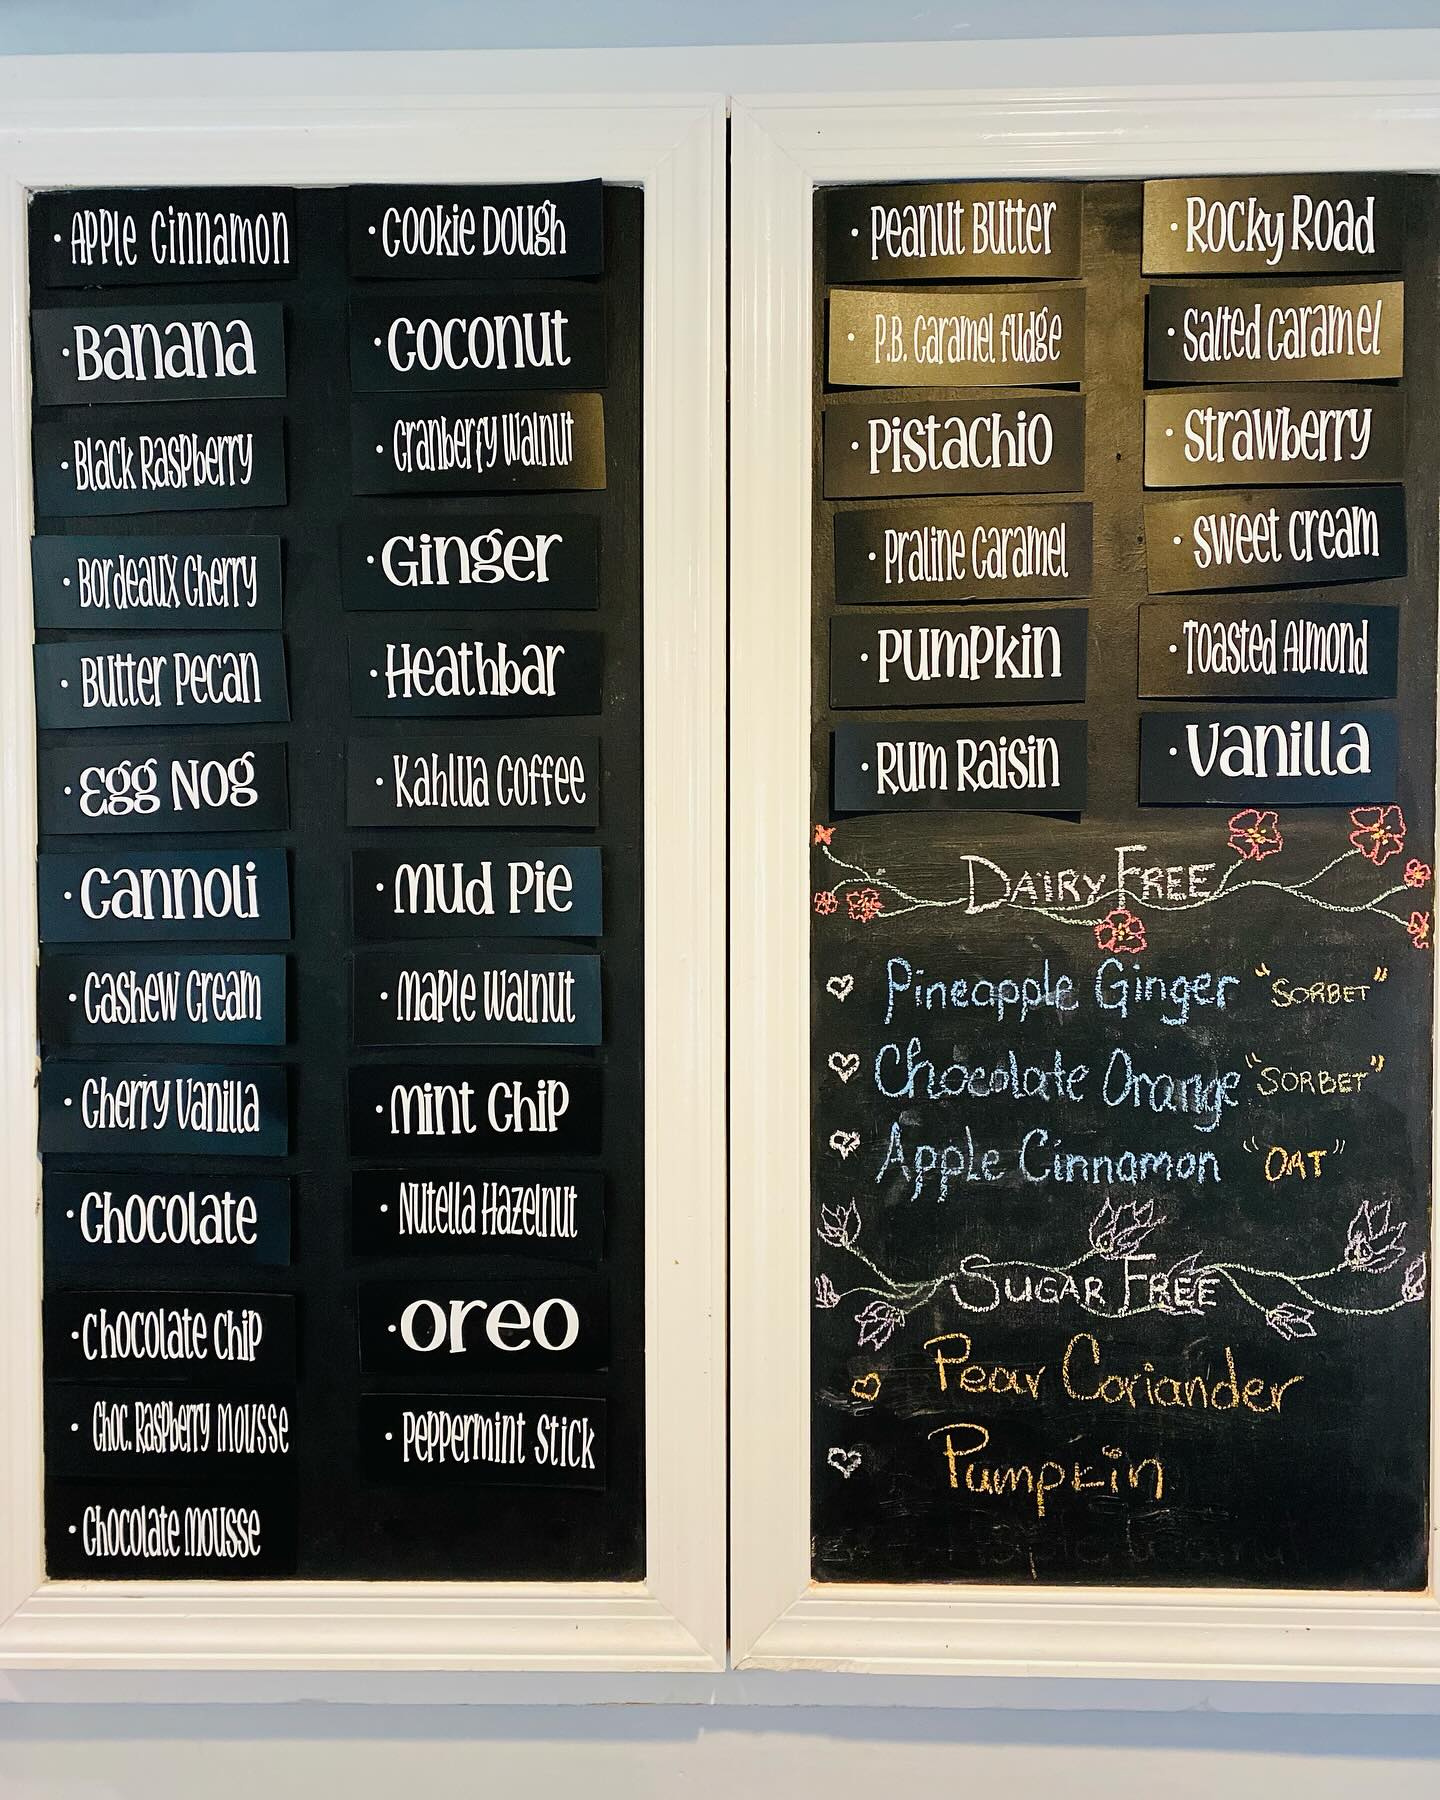 • Apple Cinnamon
• Banana
• Black Raspberry
• Bordeaux Cherry
• Butter Pecan
• Egg Nog
• Cannoli
• Cashew Cream
• Cherry Vanilla
• Chocolate
• Chocolate Chip
• Choc. Raspberry Mousse
• Chocolate Mousse
• Cookie Dough
• Coconut
• Cranberry Walnut
• Ginger
• Heathbar
• Kahlua Coffee
• Mud Pie
• Maple Walnut
• Mint Chip
• Nutella Hazelnut
• Oreo
• Peppermint Stick
• Peanut Butter
• P.B. Caramel Fudge
• Pistachio
• Praline Caramel
• Pumpkin
• Rum Raisin
• Rocky Road
• Salted Caramel
• Strawberry
• Sweet Cream
• Toasted Almond
• Vanilla
DAIRY FREE
Pineapple Ginger "SORBET"
Chocolate Orange "SORBET"
Apple Cinnamon "OAT"
SUGAR FREE
Pear Coriander
Pumpkin